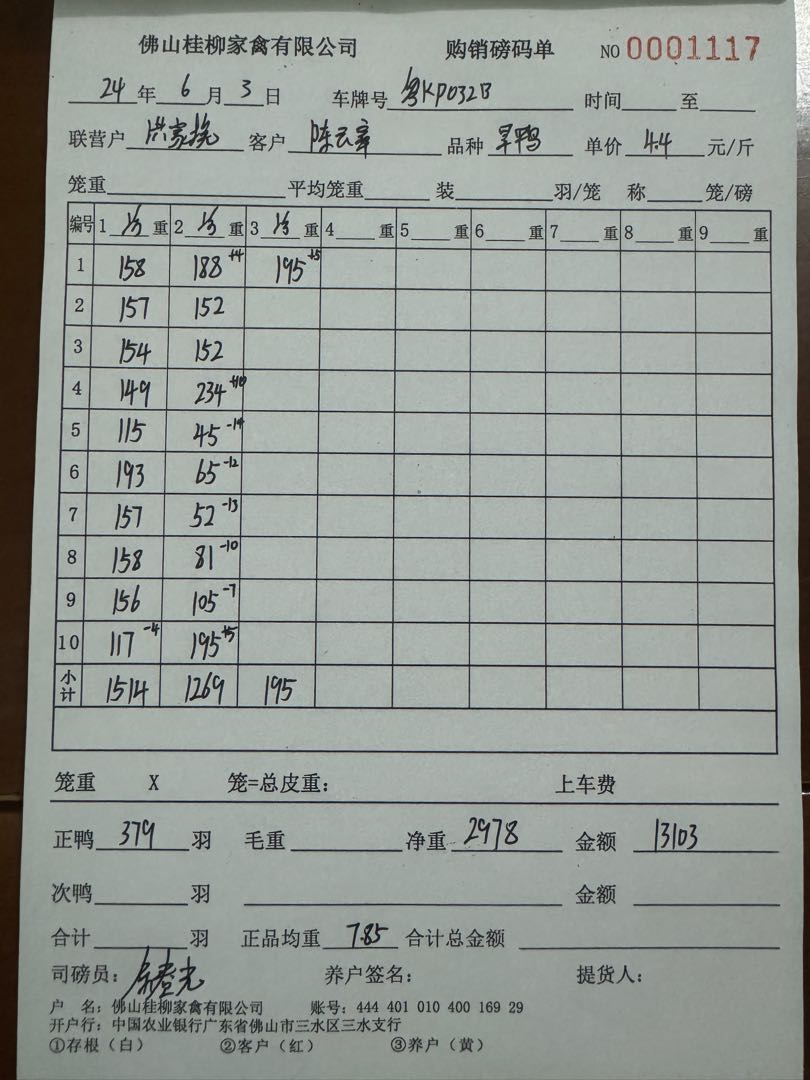 佛山桂柳家禽有限公司 购销磅码单 NO 0001117
24年6月3日 车牌号 粤KP032B 时间 至
联营户 洪家挽 客户 陈云章 品种 旱鸭 单价 4.4 元/斤
笼重 平均笼重 装 羽/笼 称 笼/磅
编号 1 1/3 重 2 1/3 重 3 1/3 重 4 重 5 重 6 重 7 重 8 重 9 重
1 158 188 +4 195 +5
2 157 152
3 154 152
4 149 234 +10
5 115 45 -14
6 193 65 -12
7 157 52 -13
8 158 81 -10
9 156 105 -7
10 117 -4 195 +5
小计 1514 1269 195
笼重 X 笼=总皮重: 上车费
正鸭 379 羽 毛重 净重 2978 金额 13103
次鸭 羽 金额
合计 羽 正品均重 7.85 合计总金额
司磅员: 养户签名: 提货人:
户 名: 佛山桂柳家禽有限公司 账号: 444 401 010 400 169 29
开户行: 中国农业银行广东省佛山市三水区三水支行
①存根(白) ②客户(红) ③养户(黄)